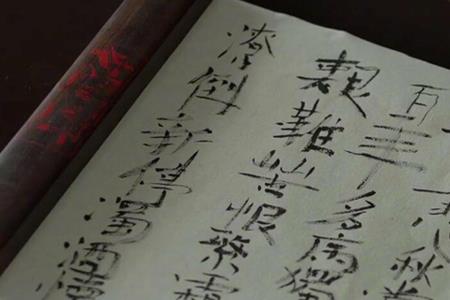 秋
百年多病獨
艱難苦恨繁霜
潦倒新停濁酒